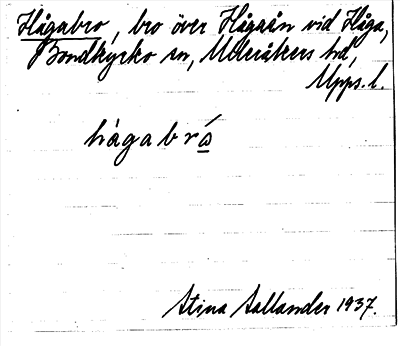 Hågabro, bro över Hågaån vid Håga,
Bondkyrko sn, Ulleråkers hd,
Upps. l.
hågabró
Stina Sallander 1937.